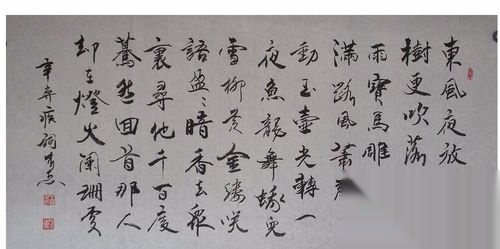 東風夜放
樹更吹落
雨寶馬雕
滿路風簫
動玉壺光轉一
夜魚龍舞蛾兒
雪柳黃金縷咲
語盈〻暗香去眾
裏尋他千百度
驀然回首那人
却在燈火闌珊處
辛弃疾詞